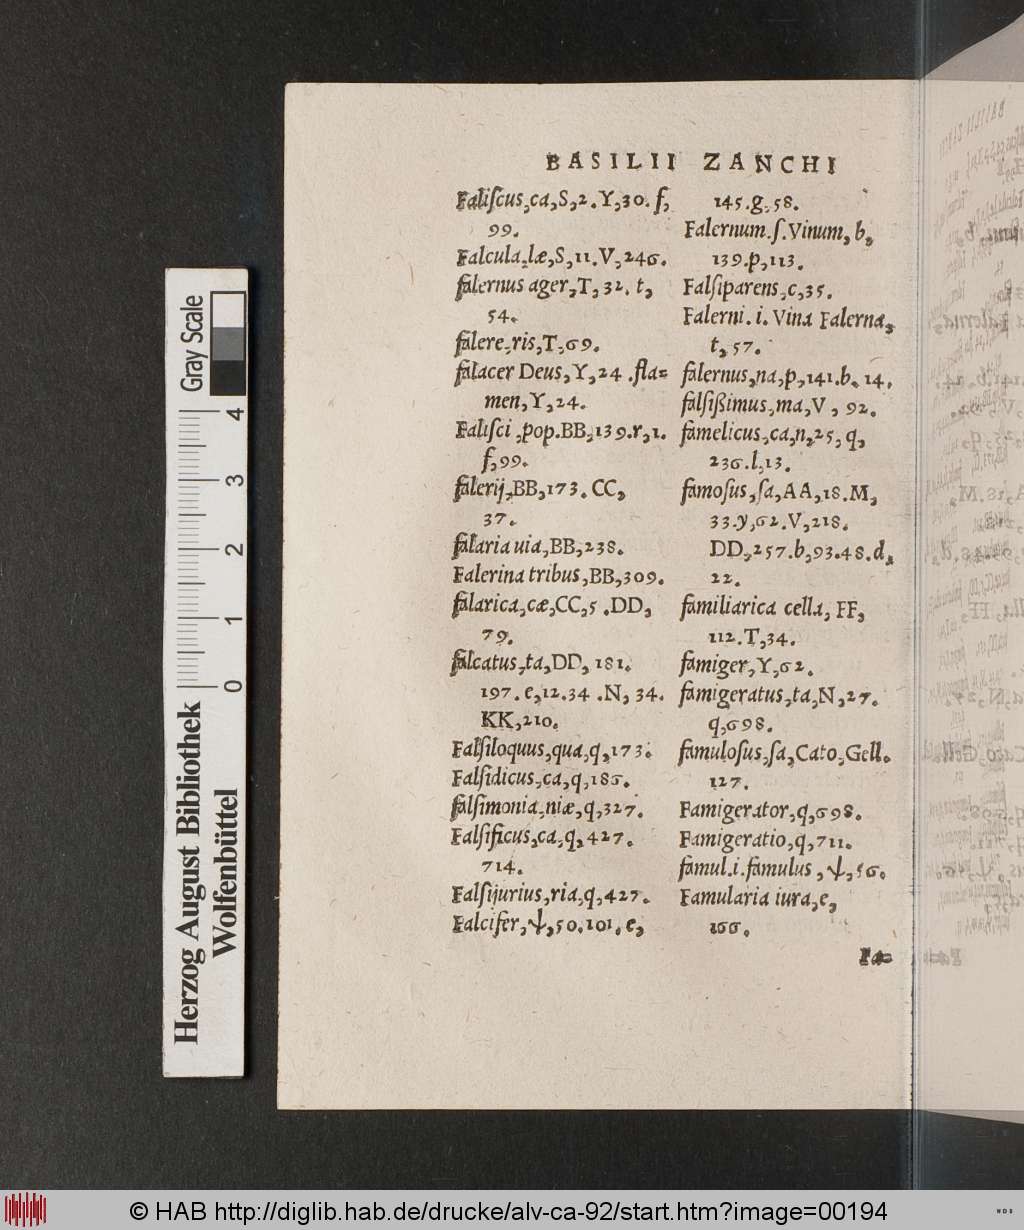 BASILII ZANCHI
Faliſcus,ca,S,2.Y,30.f,
99.
Falcula,læ,S,11.V,246.
falernus ager,T,32. t,
54.
falere,ris,T,69.
falacer Deus,Y,24.fla=
men,Y,24.
Faliſci,pop.BB,139.r,1.
f,99.
falerij,BB,173. CC,
37.
falaria uia,BB,238.
Falerina tribus,BB,309.
falarica,cæ,CC,5.DD,
79.
falcatus,ta,DD,181.
197.e,12.34.N,34.
KK,210.
Falſiloquus,qua,q,173.
Falſidicus,ca,q,186.
falſimonia,niæ,q,327.
Falſificus,ca,q,427.
714.
Falſijurius,ria,q,427.
Falcifer,ψ,50.101.e,
145.g,58.
Falernum.ſ.Vinum,b,
139.p,113.
Falſiparens,c,35.
Falerni.i.Vina Falerna,
t,57.
falernus,na,p,141.b.14.
falſißimus,ma,V,92.
famelicus,ca,n,25,q,
236.l,13.
famoſus,ſa,AA,18.M,
33.y,62.V,218.
DD,257.b,93.48.d,
22.
familiarica cella,FF,
112.T,34.
famiger,Y,62.
famigeratus,ta,N,27.
q,698.
famuloſus,ſa,Cato,Gell.
127.
Famigerator,q,698.
Famigeratio,q,711.
famul.i.famulus,ψ,56.
Famularia iura,e,
166.
Fa=
Gray Scale
4
3
2
1
0
Herzog August Bibliothek
Wolfenbüttel
© HAB http://diglib.hab.de/drucke/alv-ca-92/start.htm?image=00194